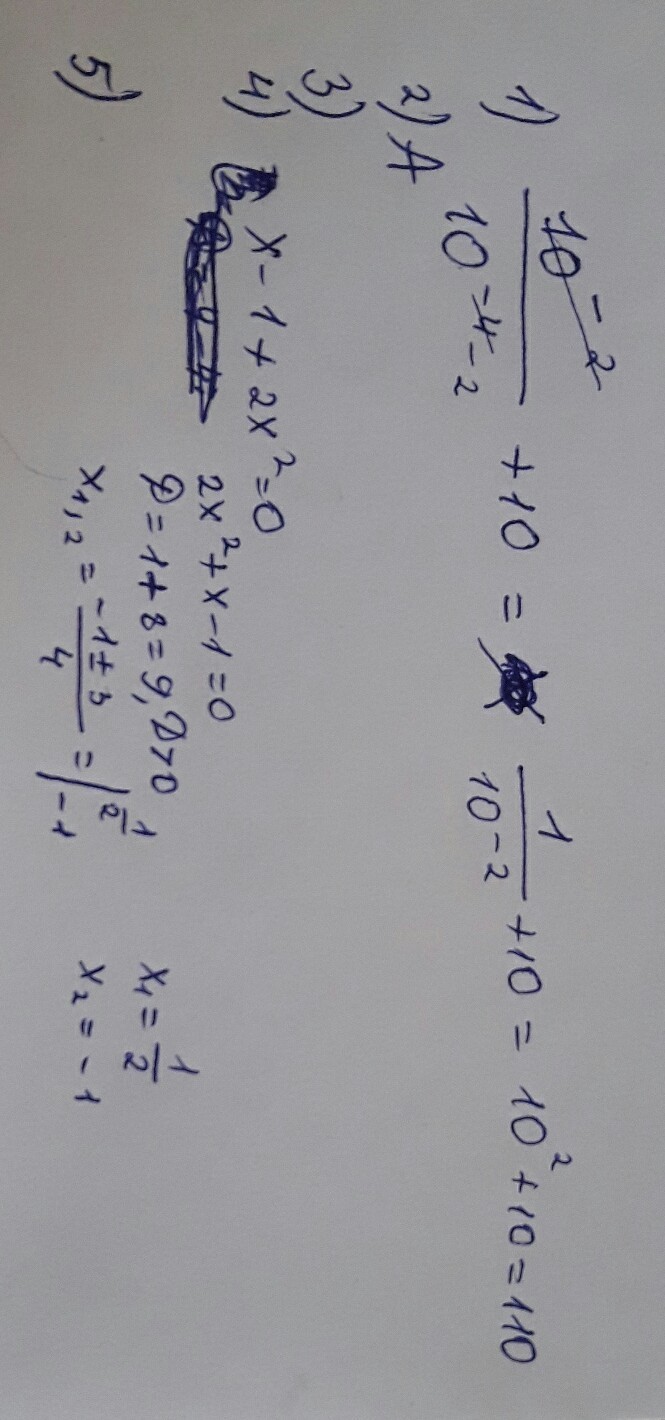 1) 10⁻² / 10⁻⁴⁻² + 10 = 1 / 10⁻² + 10 = 10² + 10 = 110
2) A
3)
4) x - 1 + 2x² = 0
2x² + x - 1 = 0
D = 1 + 8 = 9, D > 0
x₁,₂ = (-1 ± 3) / 4 = 1/2 | -1
x₁ = 1/2
x₂ = -1
5)